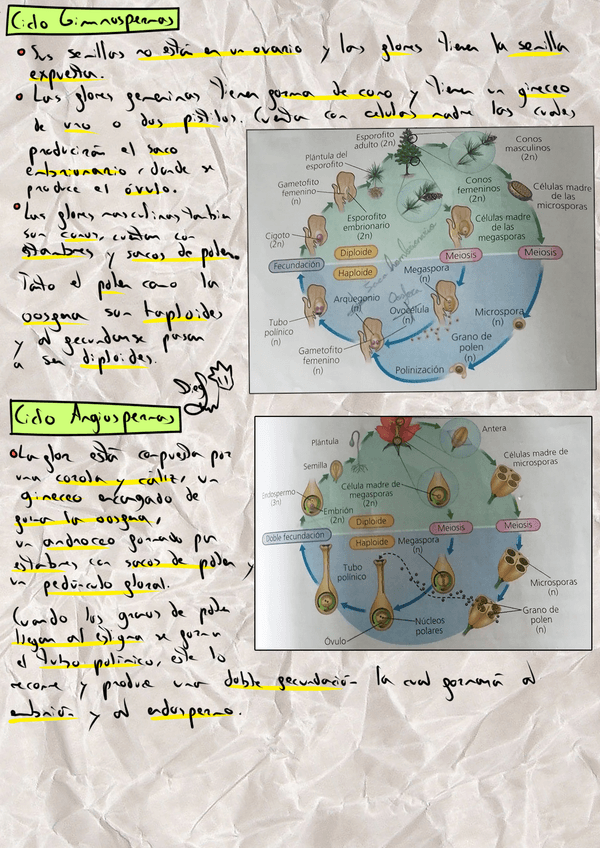 Ciclo Gimnospermas
Sus semillas no están en un ovario y las flores tienen la semilla
expuesta.
Las flores femeninas tienen forma de cono y tienen un gineceo
de uno o dos pistilos. Cuentan con células madre las cuales
producirán el saco
embrionario, donde se
produce el óvulo.
Las flores masculinas también
son conos, cuentan con
estambres y sacos de polen.
Tanto el polen como la
oosfera son haploides
y al fecundarse pasan
a ser diploides.
Esporofito
adulto (2n)
Conos
masculinos
(2n)
Plántula del
esporofito
Gametofito
femenino
(n)
Conos
femeninos
(2n)
Células madre
de las
microsporas
Esporofito
embrionario
(2n)
Células madre
de las
megasporas
Cigoto
(2n)
Fecundación
Diploide
Haploide
Meiosis
Meiosis
Megaspora
(n)
Arquegonio
(n)
Ovocélula
(n)
Oosfera
Microspora
(n)
Tubo
polínico
(n)
Grano de
polen
(n)
Gametofito
femenino
(n)
Polinización
Ciclo Angiospermas
La flor está compuesta por
una corola y cáliz, un
gineceo encargado de
formar la oosfera,
un androceo formado por
estambres con sacos de polen y
un pedúnculo floral.
Cuando los granos de polen
llegan al estigma se forman
el tubo polínico, este lo
recorre y produce una doble fecundación la cual formará al
embrión y al endospermo.
Antera
Plántula
Células madre de
microsporas
Semilla
Célula madre de
megasporas
(2n)
Endospermo
(3n)
Embrión
(2n)
Doble fecundación
Diploide
Haploide
Meiosis
Meiosis
Megaspora
(n)
Tubo
polínico
Microsporas
(n)
Grano de
polen
(n)
Núcleos
polares
Óvulo